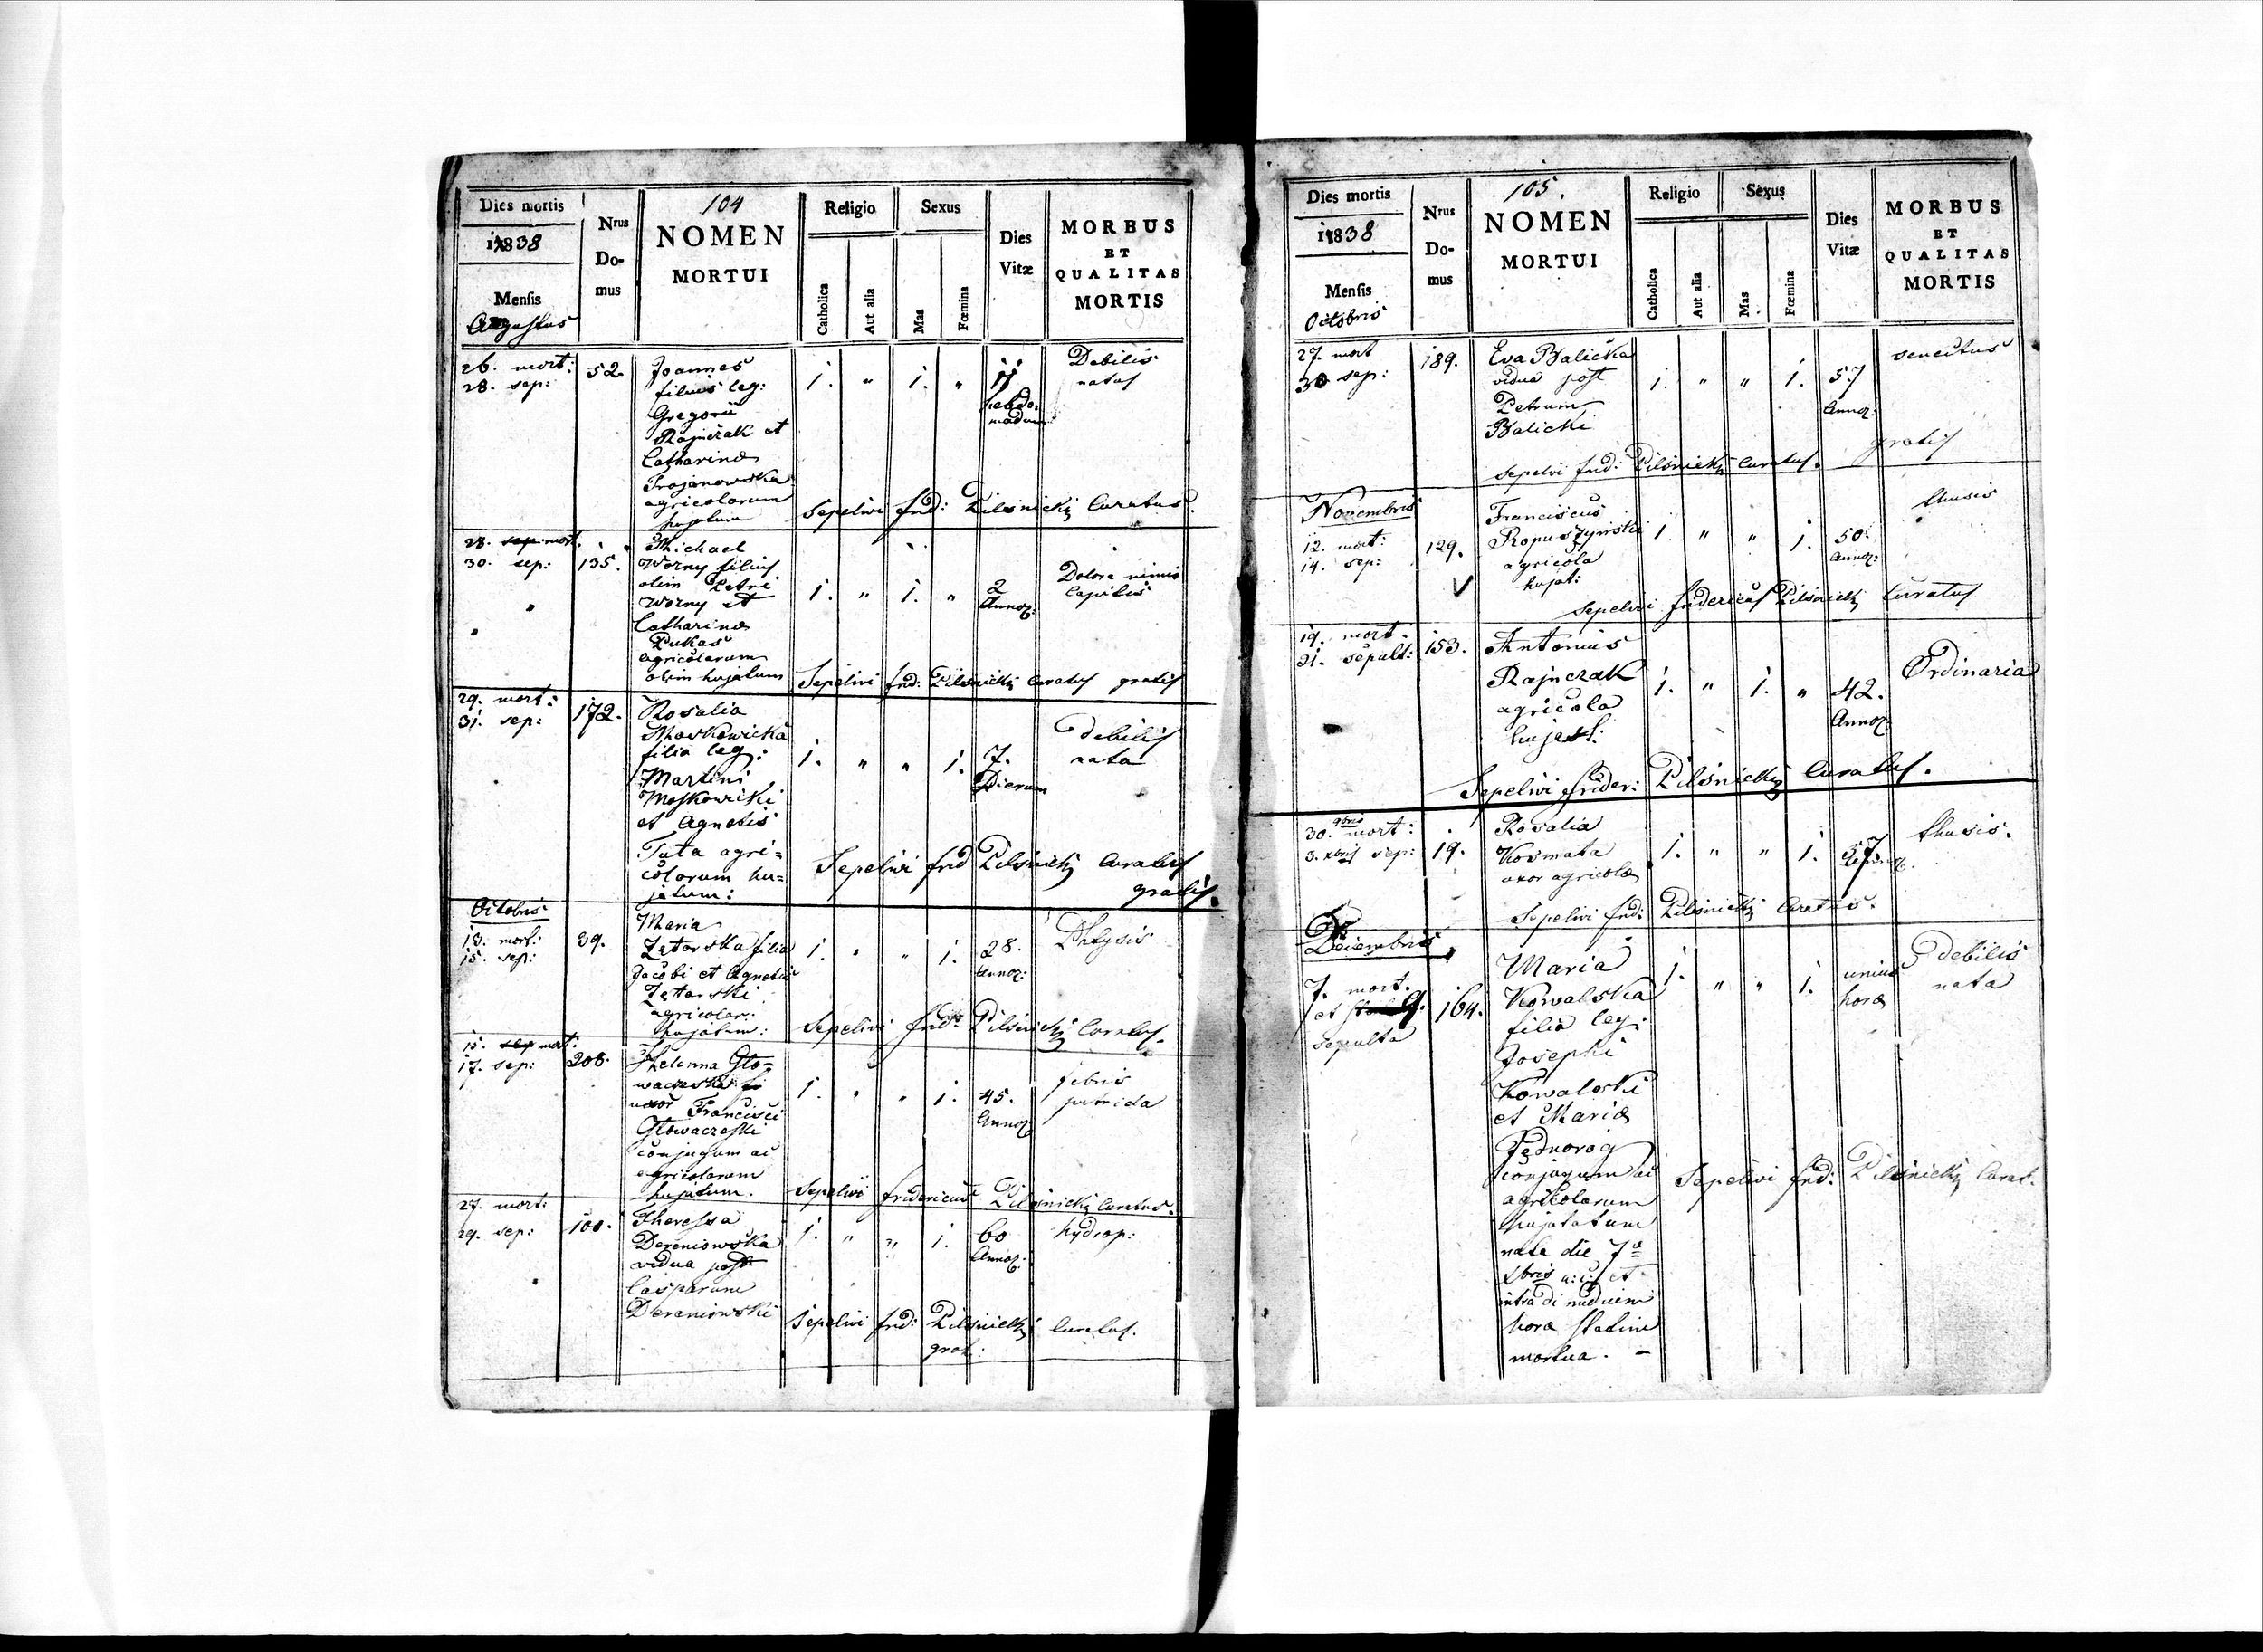 104
Dies mortis
1838
Mensis
Augustus
Nrus
Do-
mus
NOMEN
MORTUI
Religio
Catholica
Aut alia
Sexus
Mas
Fœmina
Dies
Vitæ
MORBUS
ET
QUALITAS
MORTIS
26. mort:
28. sep:
52.
Joannes
filius leg:
Gregorii
Rajnczak et
Catharinæ
Trojanowska
agricolarum
hujatum
1. " 1. "
hebdo-
madum
Debilis
natus
Sepelivi frid: Pilśnicki Curatus.
28. mort.
30. sep:
135.
Michael
Worny filius
olim Petri
Worny et
Catharinæ
Pukas
agricolarum
olim hujatum
1. " 1. "
2
Annor:
Dolore nimio
Capitis
Sepelivi frid: Pilśnicki Curatus gratis
29. mort:
31. sep:
172.
Rosalia
Moskowicka
filia leg:
Martini
Moskowicki
et Agnetis
Tuta agri=
colarum hu=
jatum:
1. " " 1.
7.
Dierum
debilis
nata
Sepelivi frid Pilśnicki Curatus
gratis.
Octobris
13. mort:
15. sep:
39.
Maria
Zętarska filia
Jacobi et Agnetis
Zętarski
agricolar:
hujatum:
1. " " 1.
28.
Annor:
Phtysis
Sepelivi frid: Pilśnicki Curatus.
15. mort:
17. sep:
208.
Helenna Gło=
waczeska
uxor Francisci
Głowaczeski
conjugum ac
agricolarum
hujatum.
1. " " 1.
45.
Annor
febris
putrida
Sepelivi fridericus Pilśnicki Curatus.
27. mort:
29. sep:
100.
Theressa
Dereniowska
vidua post
Casparum
Dereniowski
1. " " 1.
60
Annor:
hydrop:
Sepelivi frid: Pilśnicki Curatus.
grat:
105.
Dies mortis
1838
Mensis
Octobris
Nrus
Do-
mus
NOMEN
MORTUI
Religio
Catholica
Aut alia
Sexus
Mas
Fœmina
Dies
Vitæ
MORBUS
ET
QUALITAS
MORTIS
27. mort
30 sep:
189.
Eva Balicka
vidua post
Petrum
Balicki
1. " " 1.
57
Annor:
senectus
gratis
Sepelivi frid: Pilśnicki Curatus.
Novembris
12. mort:
14. sep:
129.
Franciscus
Ropuszynski
agricola
hujat:
1. " " 1.
50.
Annor:
thusis
Sepelivi fridericus Pilśnicki Curatus
19. mort.
21. sepult:
153.
Antonius
Rajnczak
agricola
hujat:
1. " 1. "
42.
Annor:
Ordinaria
Sepelivi frider: Pilśnicki Curatus.
30. 9bris mort:
3. xbris sep:
19.
Rosalia
Kosmata
uxor agricolæ
1. " " 1.
57.
thusis.
Sepelivi frid: Pilśnicki Curatus.
Decembris
7. mort.
et 9.
sepulta
164.
Maria
Kowalska
filia leg:
Josephi
Kowalski
et Mariæ
Jednorog
conjugum ac
agricolarum
hujatatum
nata die 7a
Xbris a: c: et
intra
horæ statim
mortua. -
1. " " 1.
unius
horæ
debilis
nata
Sepelivi frid: Pilśnicki Curat.